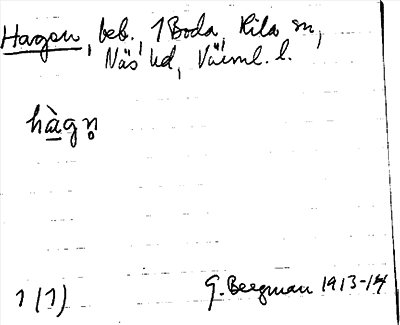 Hagen, beb., 1 Boda, Kila sn,
Näs hd, Värml. l.
hàgn̥
1 (1) G. Bergman 1913-14